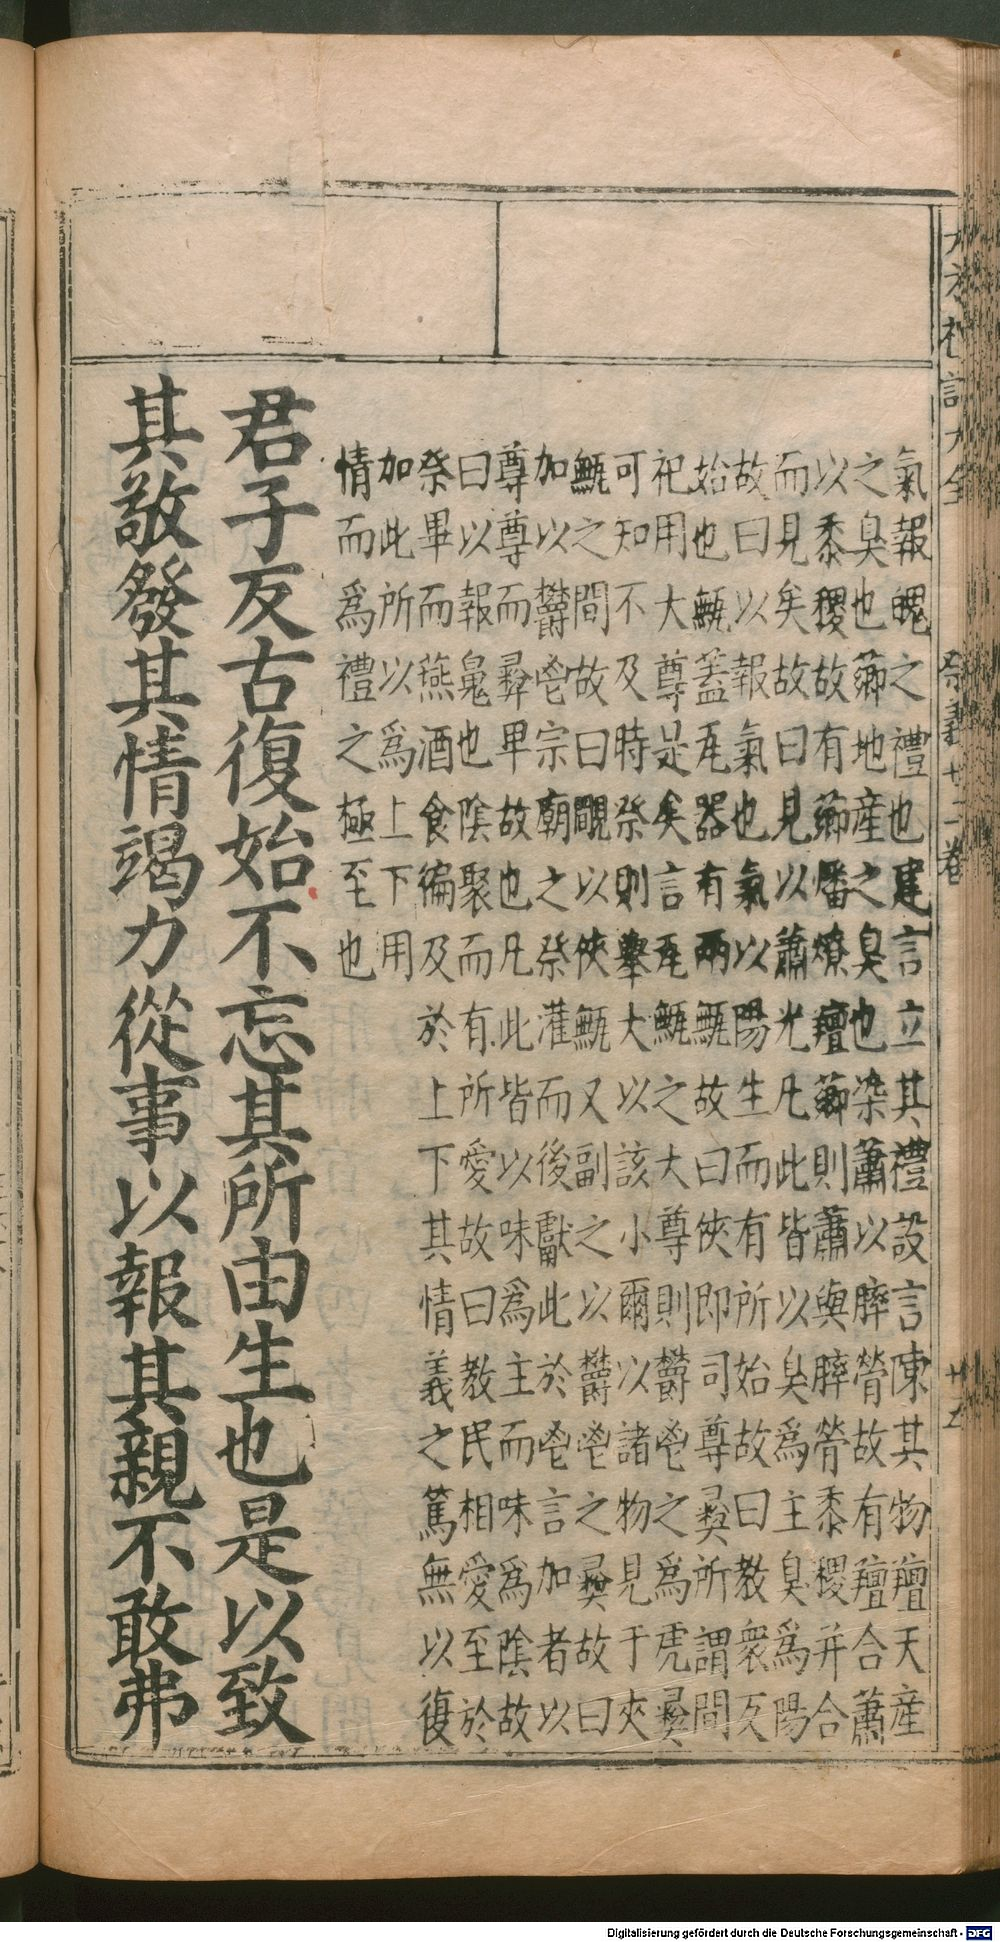 氣報魄之禮也建言立其禮設言陳其物羶天産
之臭也薌地産之臭也染蕭以膟膋故有羶合蕭
以黍稷故有薌燔燎羶薌則蕭與膟膋黍稷并合
而見矣故曰見以蕭光凡此皆以臭爲主臭爲陽
故曰以報氣也氣以陽生而有所始故曰教衆反
始也甒蓋瓦器有兩甒故曰俠即司尊彛所謂間
祀用大尊是矣言瓦甒之大尊則鬱鬯之爲虎彛
可知不及時祭則舉大以該小爾以諸物見于夾
甒之間故曰覵以俠甒又副之以鬱鬯之彛故曰
加以鬱鬯宗廟之祭灌而後獻此於鬯言加者以
尊尊而彛卑故也凡此皆以味爲主而味爲陰故
曰以報鬼也陰聚而有所愛故曰教民相愛至於
祭畢而燕酒食徧及於上下其情義之篤無以復
加此所以爲上下用
情而爲禮之極至也
君子反古復始不忘其所由生也是以致
其敬發其情竭力從事以報其親不敢弗
祭義十二卷
廿五
Digitalisierung gefördert durch die Deutsche Forschungsgemeinschaft - DFG